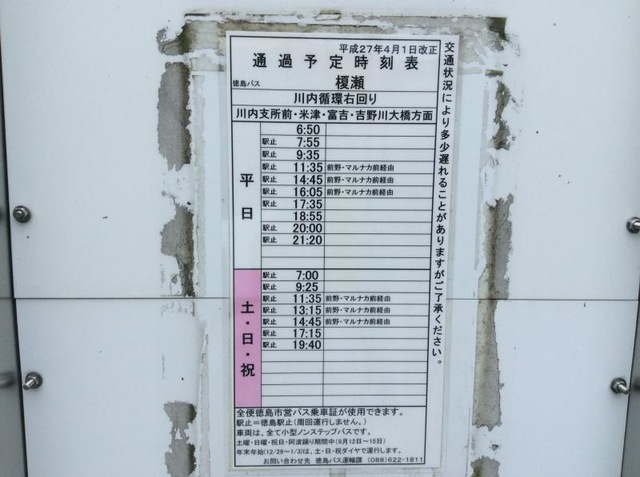 平成27年4月1日改正
通過予定時刻表
徳島バス 榎瀬
川内循環右回り
川内支所前・米津・富吉・吉野川大橋方面
平日
6:50
駅止 7:55
駅止 9:35
駅止 11:35 前野・マルナカ前経由
駅止 14:45 前野・マルナカ前経由
駅止 16:05 前野・マルナカ前経由
駅止 17:35
18:55
駅止 20:00
駅止 21:20
土・日・祝
駅止 7:00
駅止 9:25
駅止 11:35 前野・マルナカ前経由
駅止 13:15 前野・マルナカ前経由
駅止 14:45 前野・マルナカ前経由
駅止 17:15
駅止 19:40
全便徳島市営バス乗車証が使用できます。
駅止=徳島駅止(周回運行しません。)
車両は、全て小型ノンステップバスです。
土曜・日曜・祝日・阿波踊り期間中(8月12日~15日)
年末年始(12/29~1/3)は、土・日・祝ダイヤで運行します。
お問い合わせ先 徳島バス運輸課 (088)622-1811
交通状況により多少遅れることがありますがご了承ください。